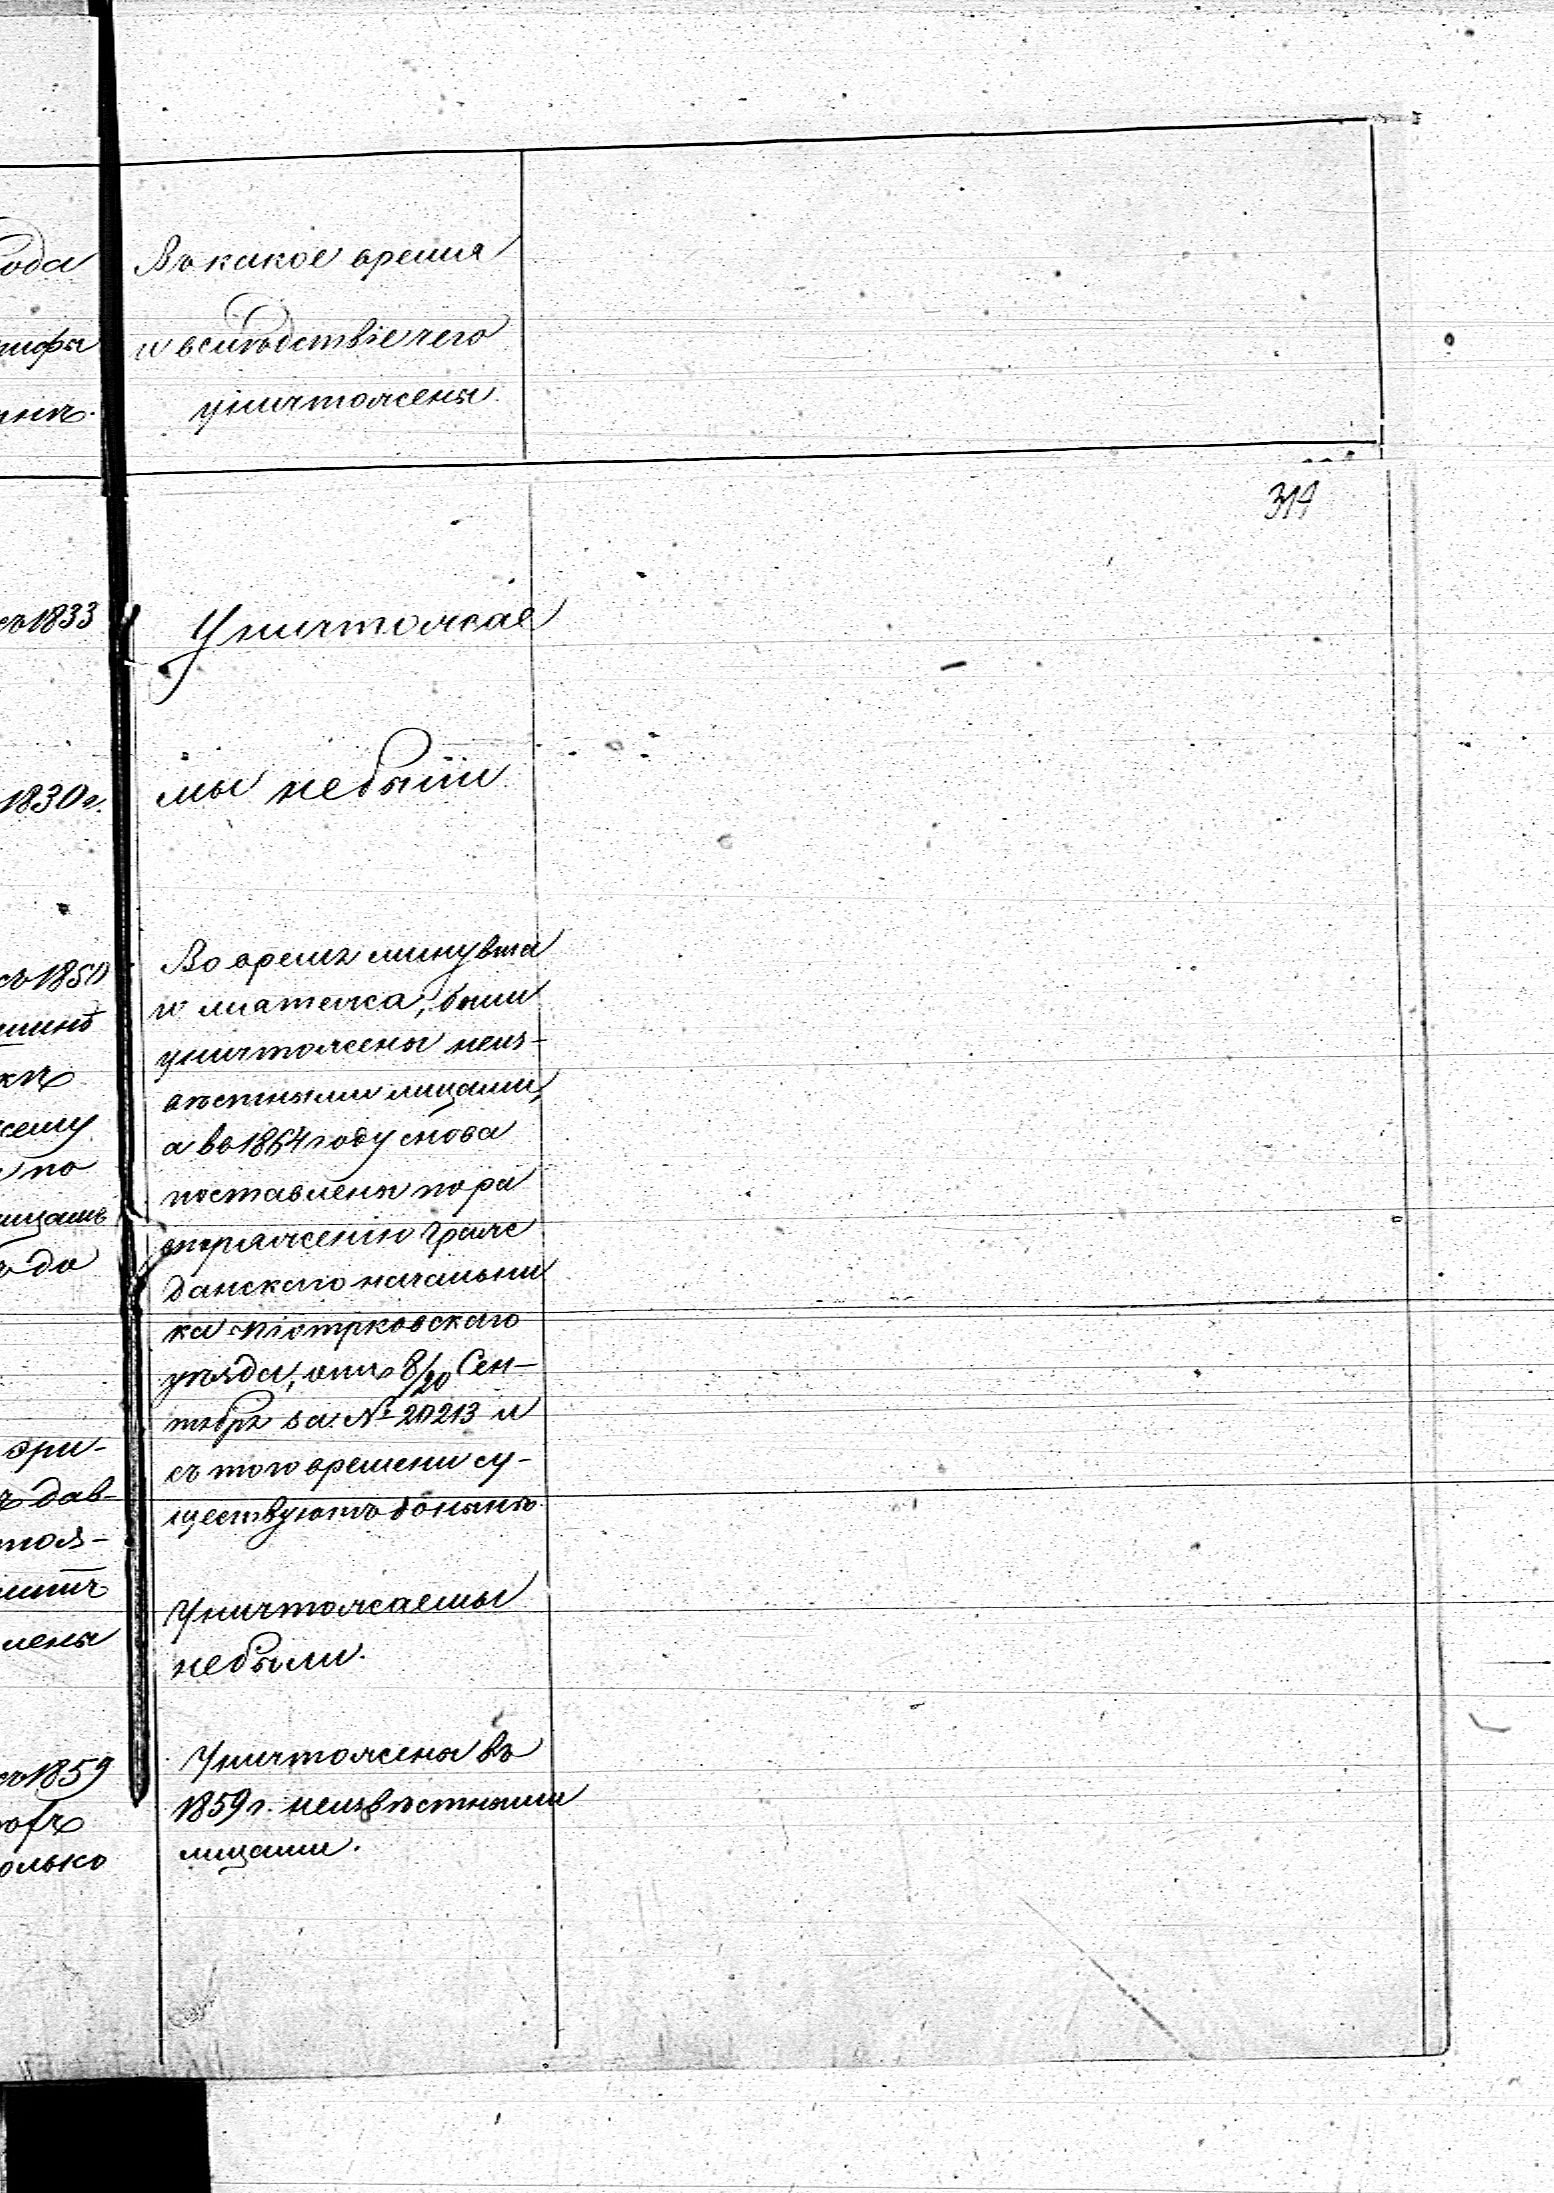 ода
Въ какое время
и вслѣдствіе чего
уничтожены.
314
съ 1833
Уничтожае
1830 г.
мы небыли
съ 1850
Во время минувша
го мятежа, были
уничтожены неиз-
вѣстными лицами,
а въ 1864 году снова
по
поставлены по ра
споряженію граж
до
данскаго начальни
ка Піотрковскаго
уѣзда, отъ 8/20 Сен-
тября за № 20213 и
эри-
съ того времени су-
дав-
ществуютъ донынѣ.
Уничтожаемы
лены
небыли.
съ 1859
Уничтожены въ
1859 г. неизвѣстными
олько
лицами.